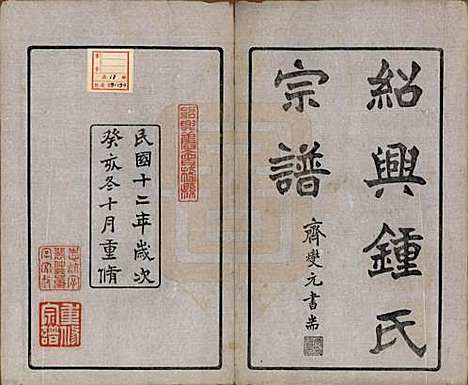 紹興鍾氏
宗譜
齊燮元書耑
民國十二年歲次
癸亥冬十月重脩
重修
宗譜